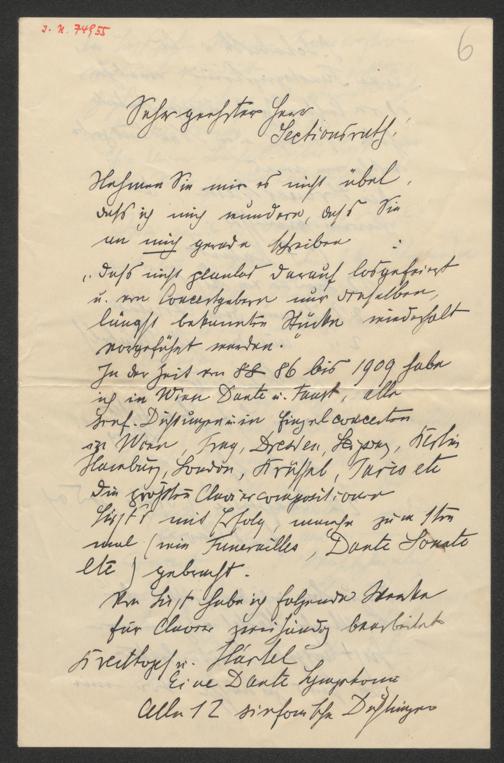 J. N. 74955
6
Sehr geehrter Herr
Sectionsrath!
Nehmen Sie mir es nicht übel,
daß ich mich wundere, daß Sie
an mich gerade schreiben :
„daß nicht planlos darauf losgefeiert
u. von Concertgebern nur dieselben,
längst bekannten Stücke wiederholt
vorgeführt werden.
In der Zeit von 86 bis 1909 habe
ich in Wien Dante u. Faust, alle
symf. Dichtungen u. in Einzelconcerten
in Wien, Prag, Dresden, Leipzig, Berlin
Hamburg, London, Brüssel, Paris etc
die größten Claviercompositionen
Liszt's mit Erfolg, manche zum 1ten
mal (wie Funerailles, Dante Sonate
etc) gebracht.
Von Liszt habe ich folgende Werke
für Clavier zweihändig bearbeitet
Breitkopf u. Härtel
Eine Dante Symphonie
Alle 12 sinfonische Dichtungen